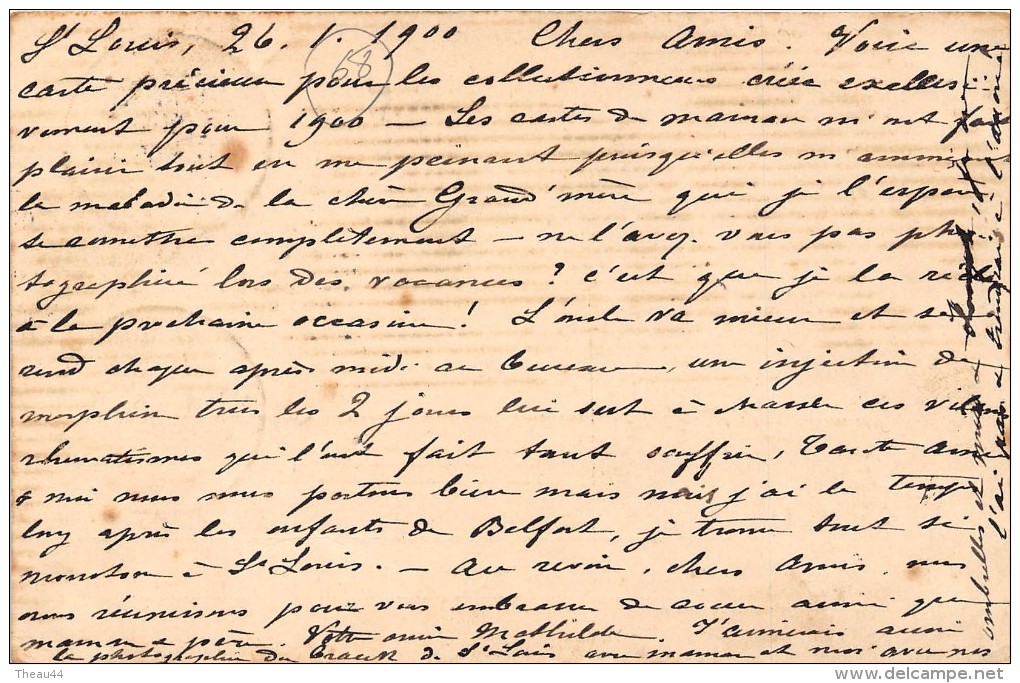 St Louis, 26. 1. 1900 Chers Amis. Voici une
carte précieuse pour les collectionneurs créée exclusi-
vement pour 1900 — Les cartes de maman m'ont fait
plaisir tout en me peinant puisqu'elles m'
la maladie de la chère Grand'mère qui je l'espère
se complètement — ne l'avez vous pas pho
tographiée lors des vacances? c'est que je la
à la prochaine occasion! L'oncle va mieux et se
rend chaque après midi au bureau, une injection de
morphine tous les 2 jours lui sert à chasser ces vilains
rhumatismes qui l'ont fait tant souffrir, Tante
& moi nous nous portons bien mais j'ai le temps
long après les enfants de Belfort, je trouve tout si
monoton à St Louis. — Au revoir, chers Amis, nous
nous réunissons pour vous embrasser de coeur ainsi que
maman & père. Votre amie Mathilde. J'aimerais aussi
la photographie du de St Louis avec maman et moi avec nos
ombrelles
68
Theau44
delcampe.net